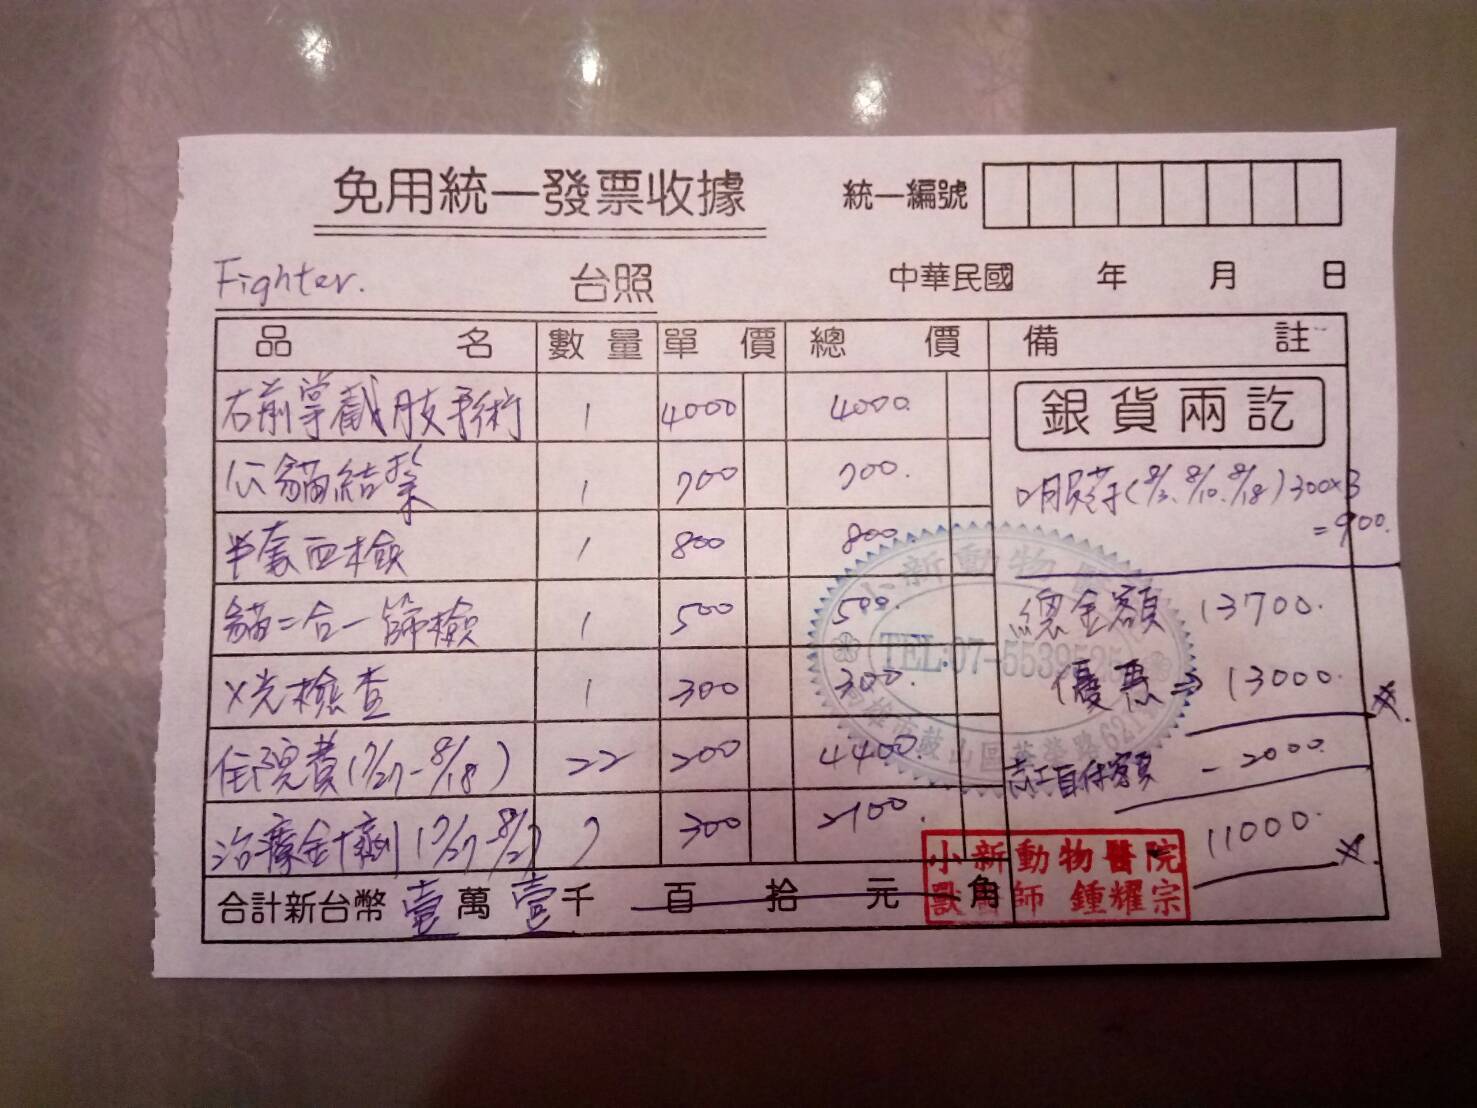 免用統一發票收據
統一編號
Fighter. 台照
中華民國 年 月 日
品名 數量 單價 總價 備註
右前掌截肢手術 1 4000 4000.
公貓結紮 1 700 700.
半套血檢 1 800 800.
貓二合一篩檢 1 500 500.
X光檢查 1 300 300.
住院費(7/27-8/18) 22 200 4400.
治療針劑(7/27-8/2) 7 300 2100.
合計新台幣 壹萬 壹千 百 拾 元 角
銀貨兩訖
口服藥(8/3、8/10、8/18) 300x3
=900.
總金額 13700.
優惠⇒ 13000.
志工自付額 -2000
11000.
小新動物醫
TEL:07-5539525
高雄市鼓山區華榮路621
小新動物醫院
獸醫師 鍾耀宗